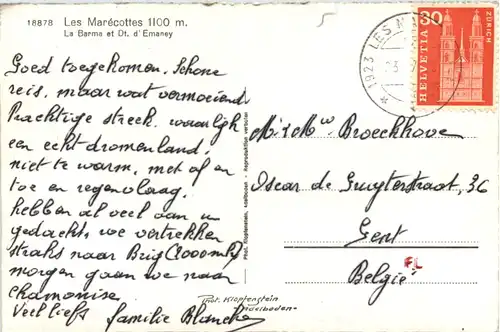 18878 Les Marécottes 1100 m.
La Barma et Dt. d'Emaney
Goed toegekomen. Schone
reis, maar wat vermoeiend
Prachtige streek, waarlijk
een echt dromenland,
niet te warm, met af en
toe en regenvlaag.
hebben al veel aan u
gedacht, we vertrekken
straks naar Brig (2000m)
morgen gaan we naar
chamonise.
Veel liefs familie
Phot. Klopfenstein, Adelboden - Reproduktion verboten
Phot. Klopfenstein
Adelboden
1923 LES MA
30
HELVETIA
ZÜRICH
M. & Mw Broeckhove
Oscar de Gruyterstraat, 36
Gent
België